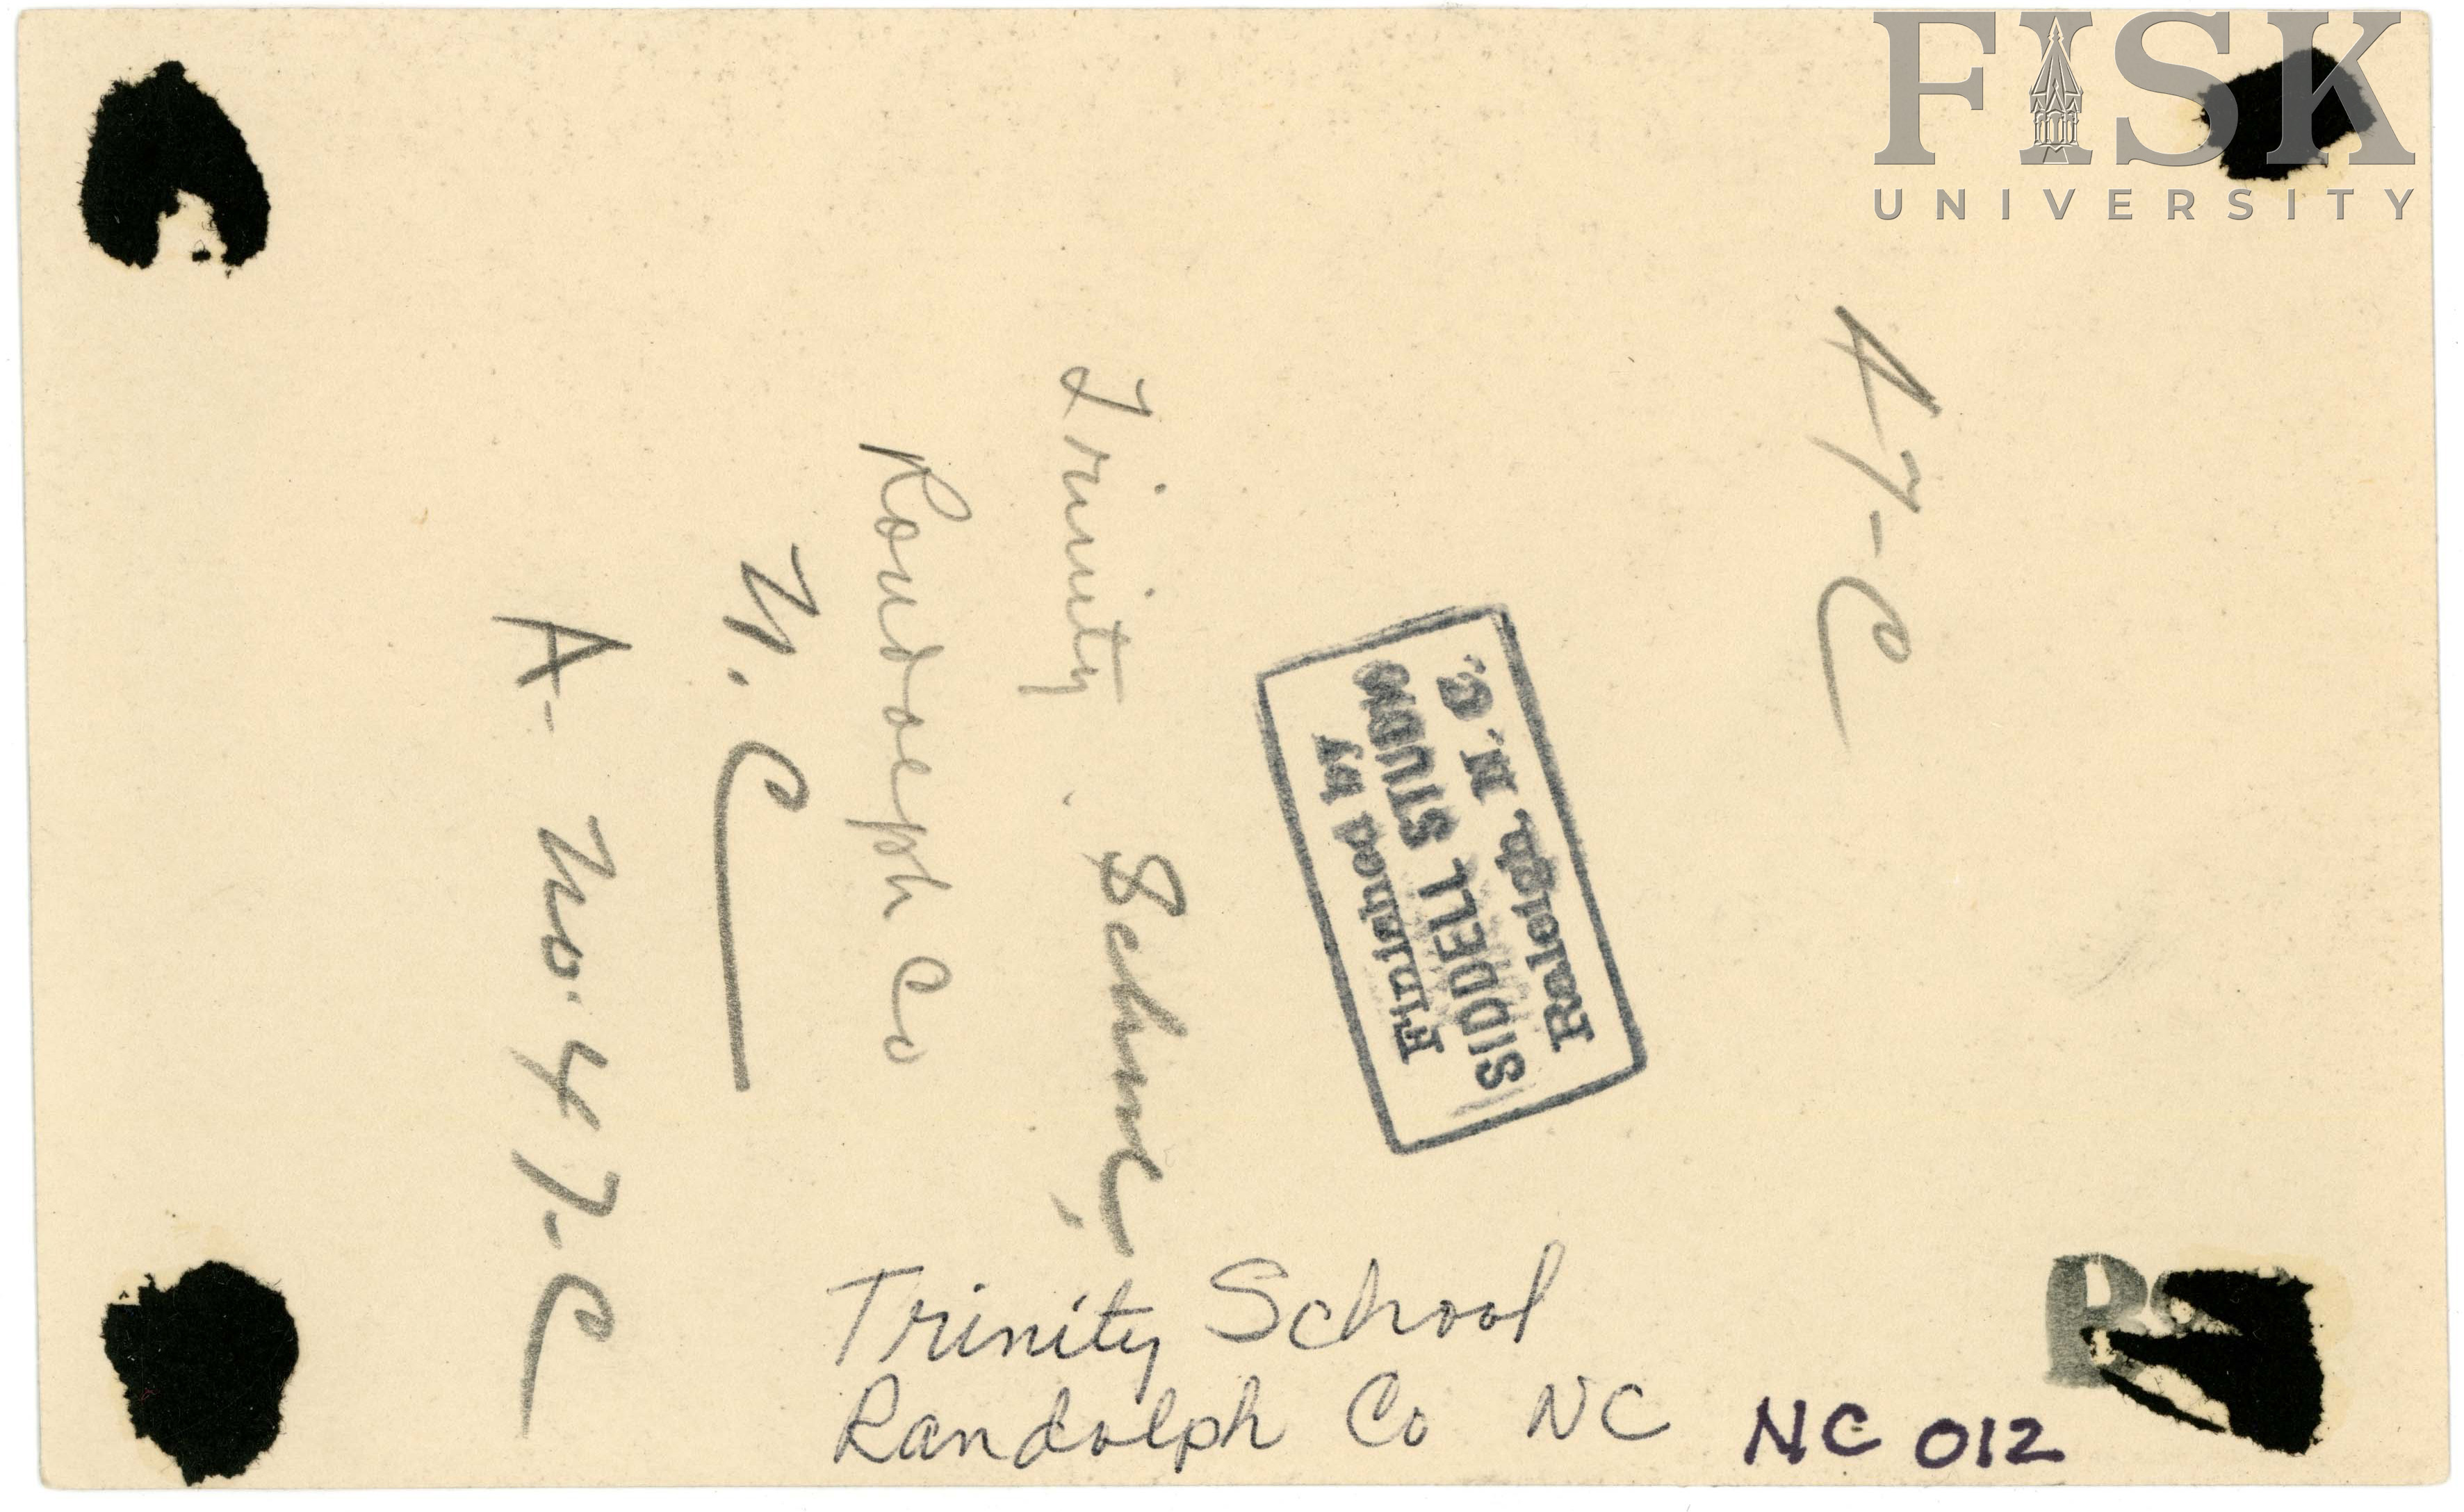 FISK
UNIVERSITY
47-C
Finished by
SIDDELL STUDIO
Raleigh, N. C.
Trinity School
Randolph Co
N. C
A- No. 47-C
Trinity School
Randolph Co NC
NC 012